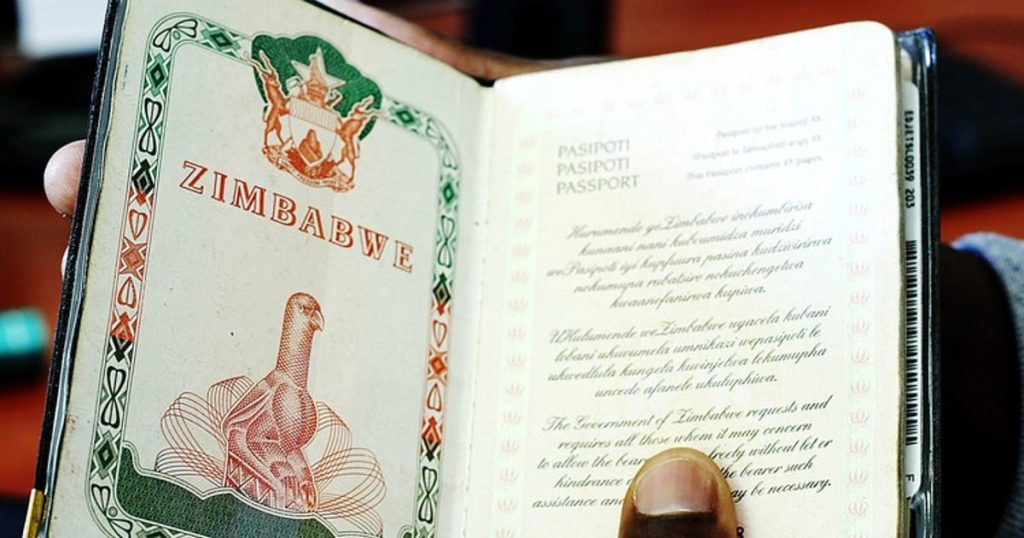 ZIMBABWE
PASIPOTI
PASIPOTI
PASSPORT
Pasipoti iyi ine mapeji 48
iPasipoti le ilamaphepha angu 48
This Passport contains 48 pages
Hurumende yeZimbabwe inokumbirisa
kunaani nani kubvumidza muridzi
wePasipoti iyi kupfuura pasina kudzivirirwa
nokumupa rubatsiro nokuchengetwa
kwaanofanirwa kupiwa.
UHulumende weZimbabwe uyacela kubani
lobani ukuvumela umnikazi wepasipoti le
ukwedlula kungela kuvinjelwa lekumupha
uncedo afanele ukutuphiwa.
The Government of Zimbabwe requests and
requires all those whom it may concern
to allow the freely without let or
hindrance the bearer such
assistance and may be necessary.
203
F